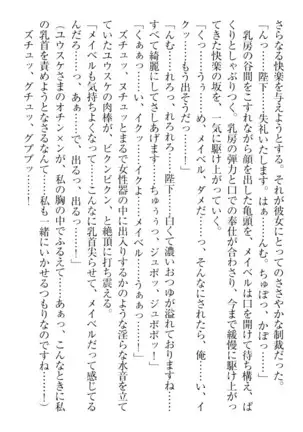 さらなる快楽を与えようとする。それが彼女にとってのささやかな制裁だった。
「んっ……陛下、失礼いたします。はぁ……んむ、ちゅぽっ、かぽっ……」
乳房の谷間をこすれながら顔を出した亀頭を、メイベルは口を開けて待ち構え、ぱ
くりとしゃぶりつく。乳房の弾力と口での奉仕が合わさり、今まで緩慢に駆け上がっ
てきた快楽の坂を、一気に駆け上がっていく。
「くっ……うぅ……め、メイベル、ダメだ……っ、そんなにされたら、俺……い、イ
クっ……もう出そうだっ……」
「んむ……れろっ、れろれろ……陛下……白くて濃いおつゆが溢れておりますね……
すべて綺麗にしてさしあげます……ちゅううっ、ジュポッ、ジュポポッ！」
「くぁぁっ……い、イクっ……イクよ、メイベル……イクうぁぁっ……！」
ズチュッ、ヌチュッとまるで女性器の中に出入りするかのような淫らな水音を立て
ながら、ユウスケの肉棒が、ビクンビクン、と絶頂に打ち震える。
「メイベルも気持ちよくなって……こんなに乳首尖らせて、メイベルだって感じてる
んだろ……っ、あぁっ……で、出るっ、出るっ……！」
（ユウスケさまのオチンメンが、私の胸の中でふるえて……あぁっ、こんなときに私
の乳首を責めようとなさるなんて……私も一緒にいかせるつもりなのですね……！）
ズチュッ、グチュッ、グブブッ……！